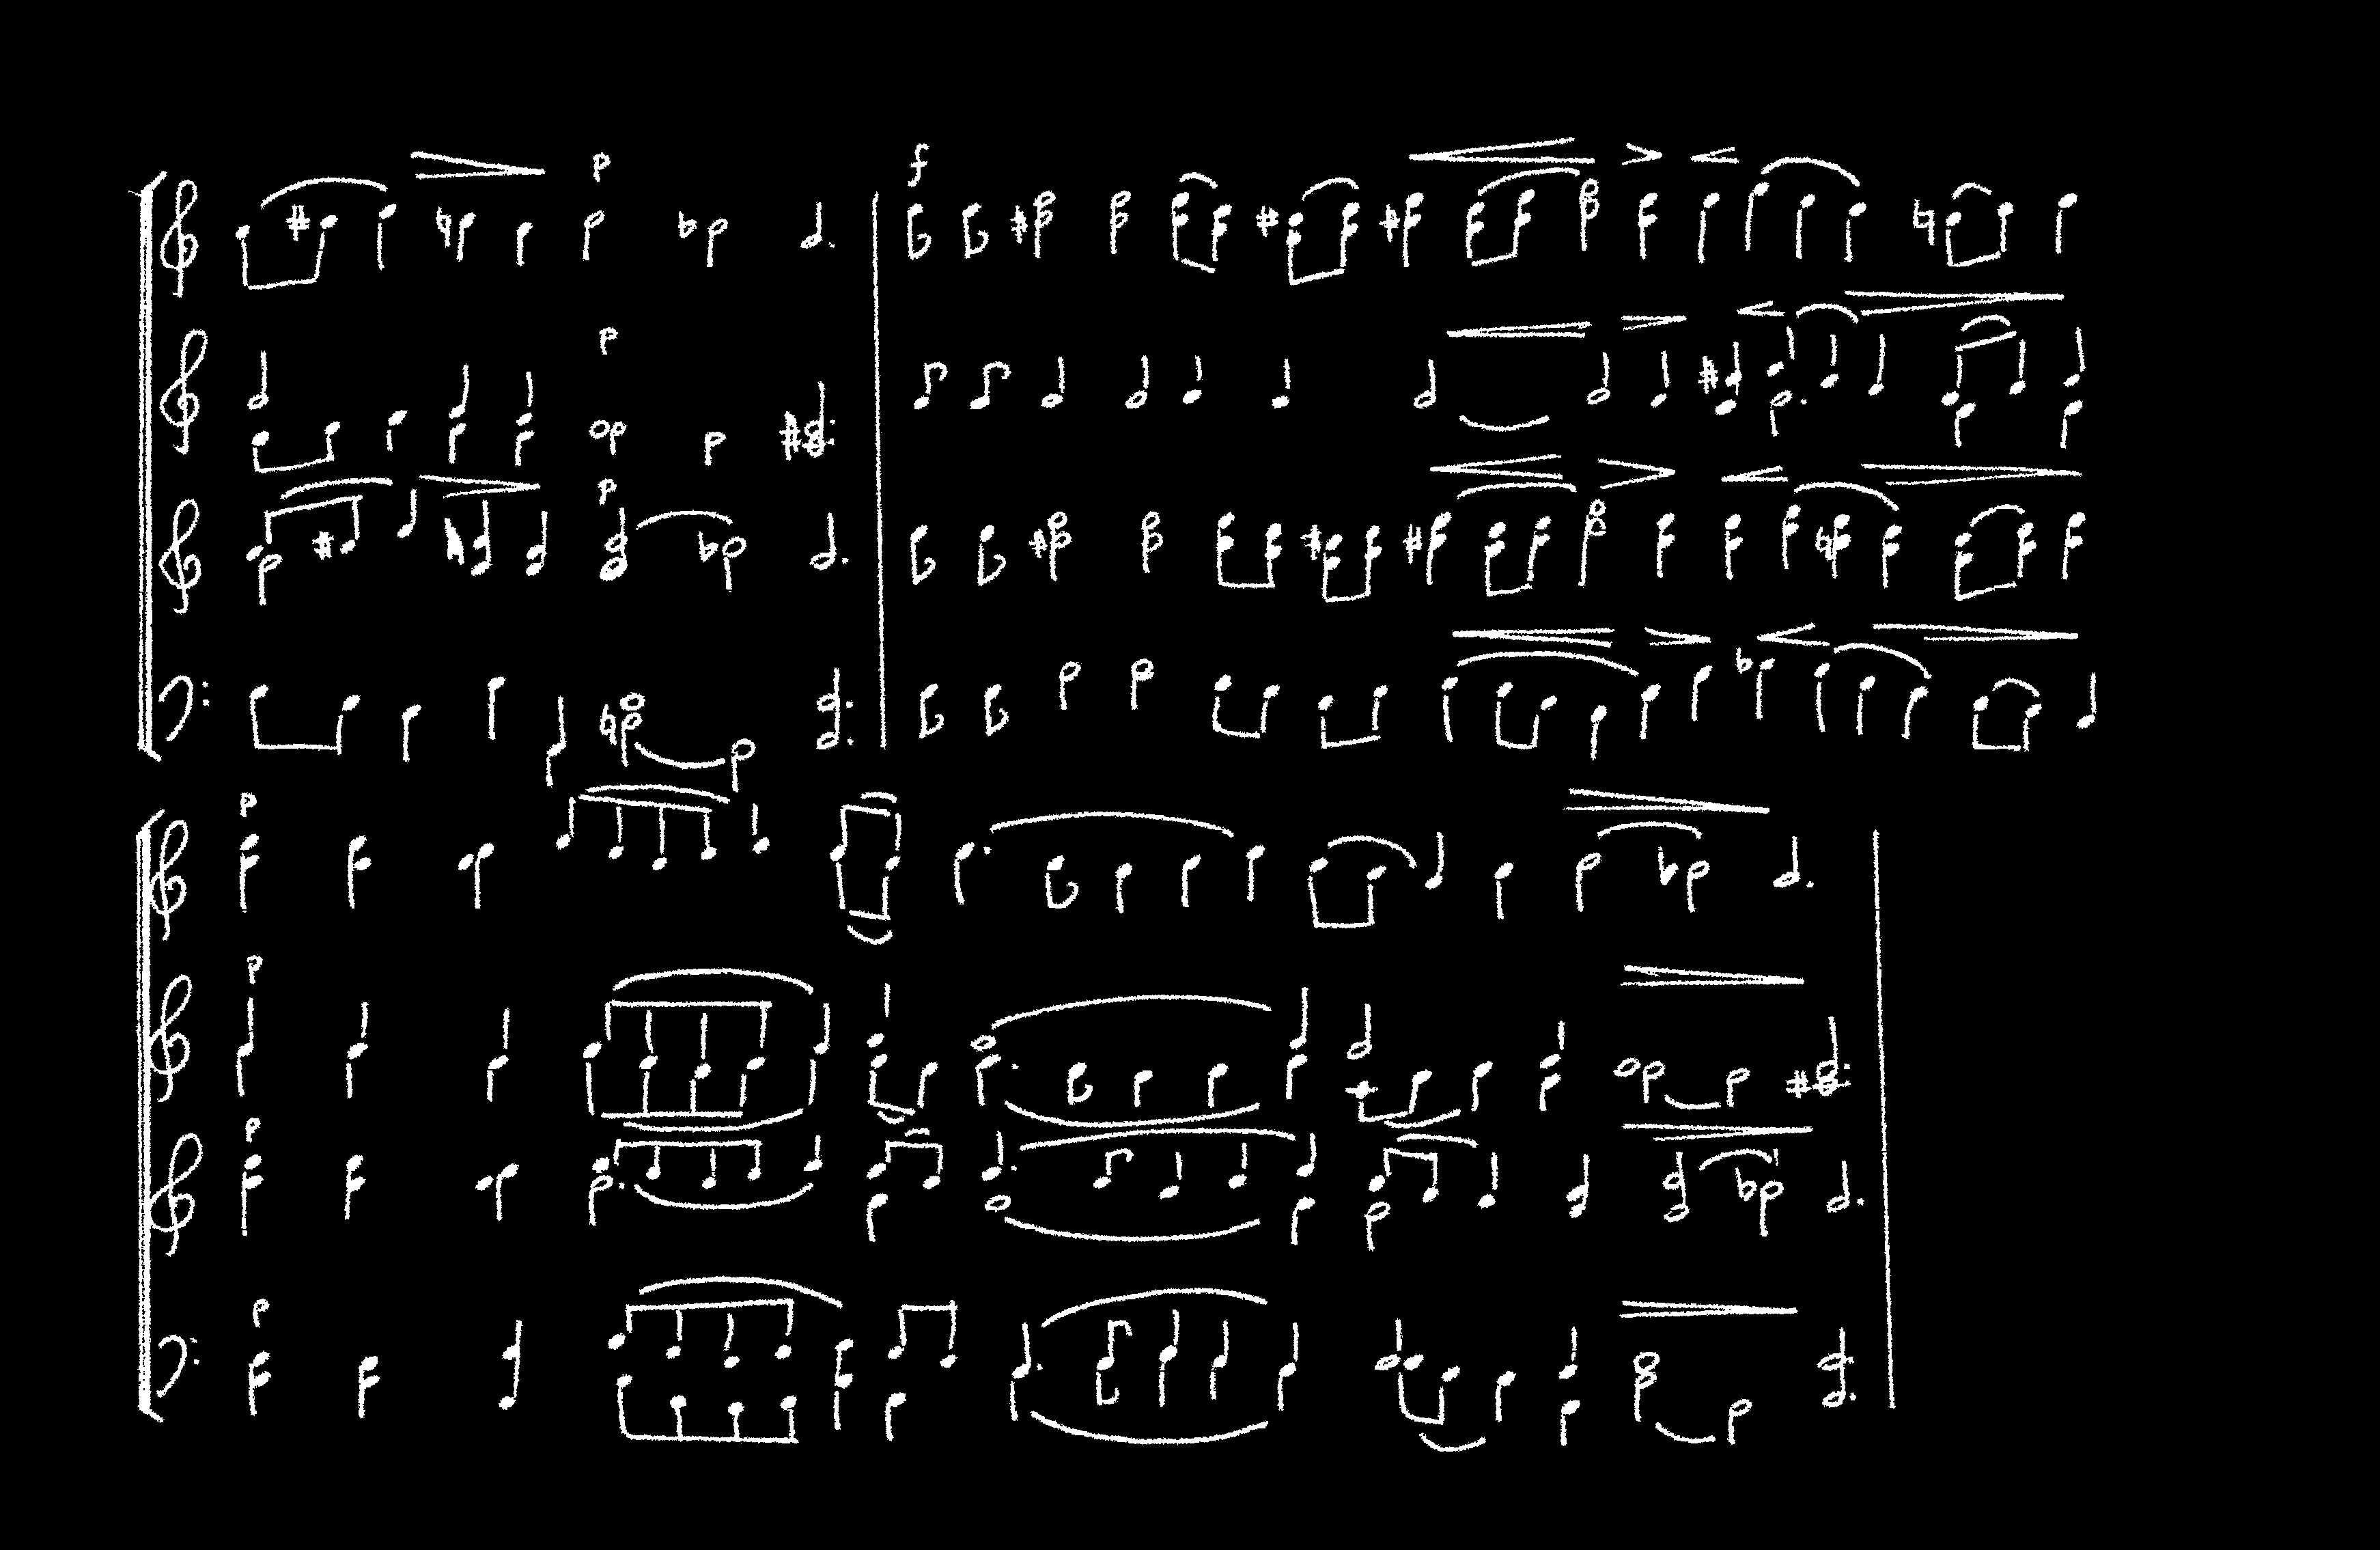 p f
p
p
p
p
p
p